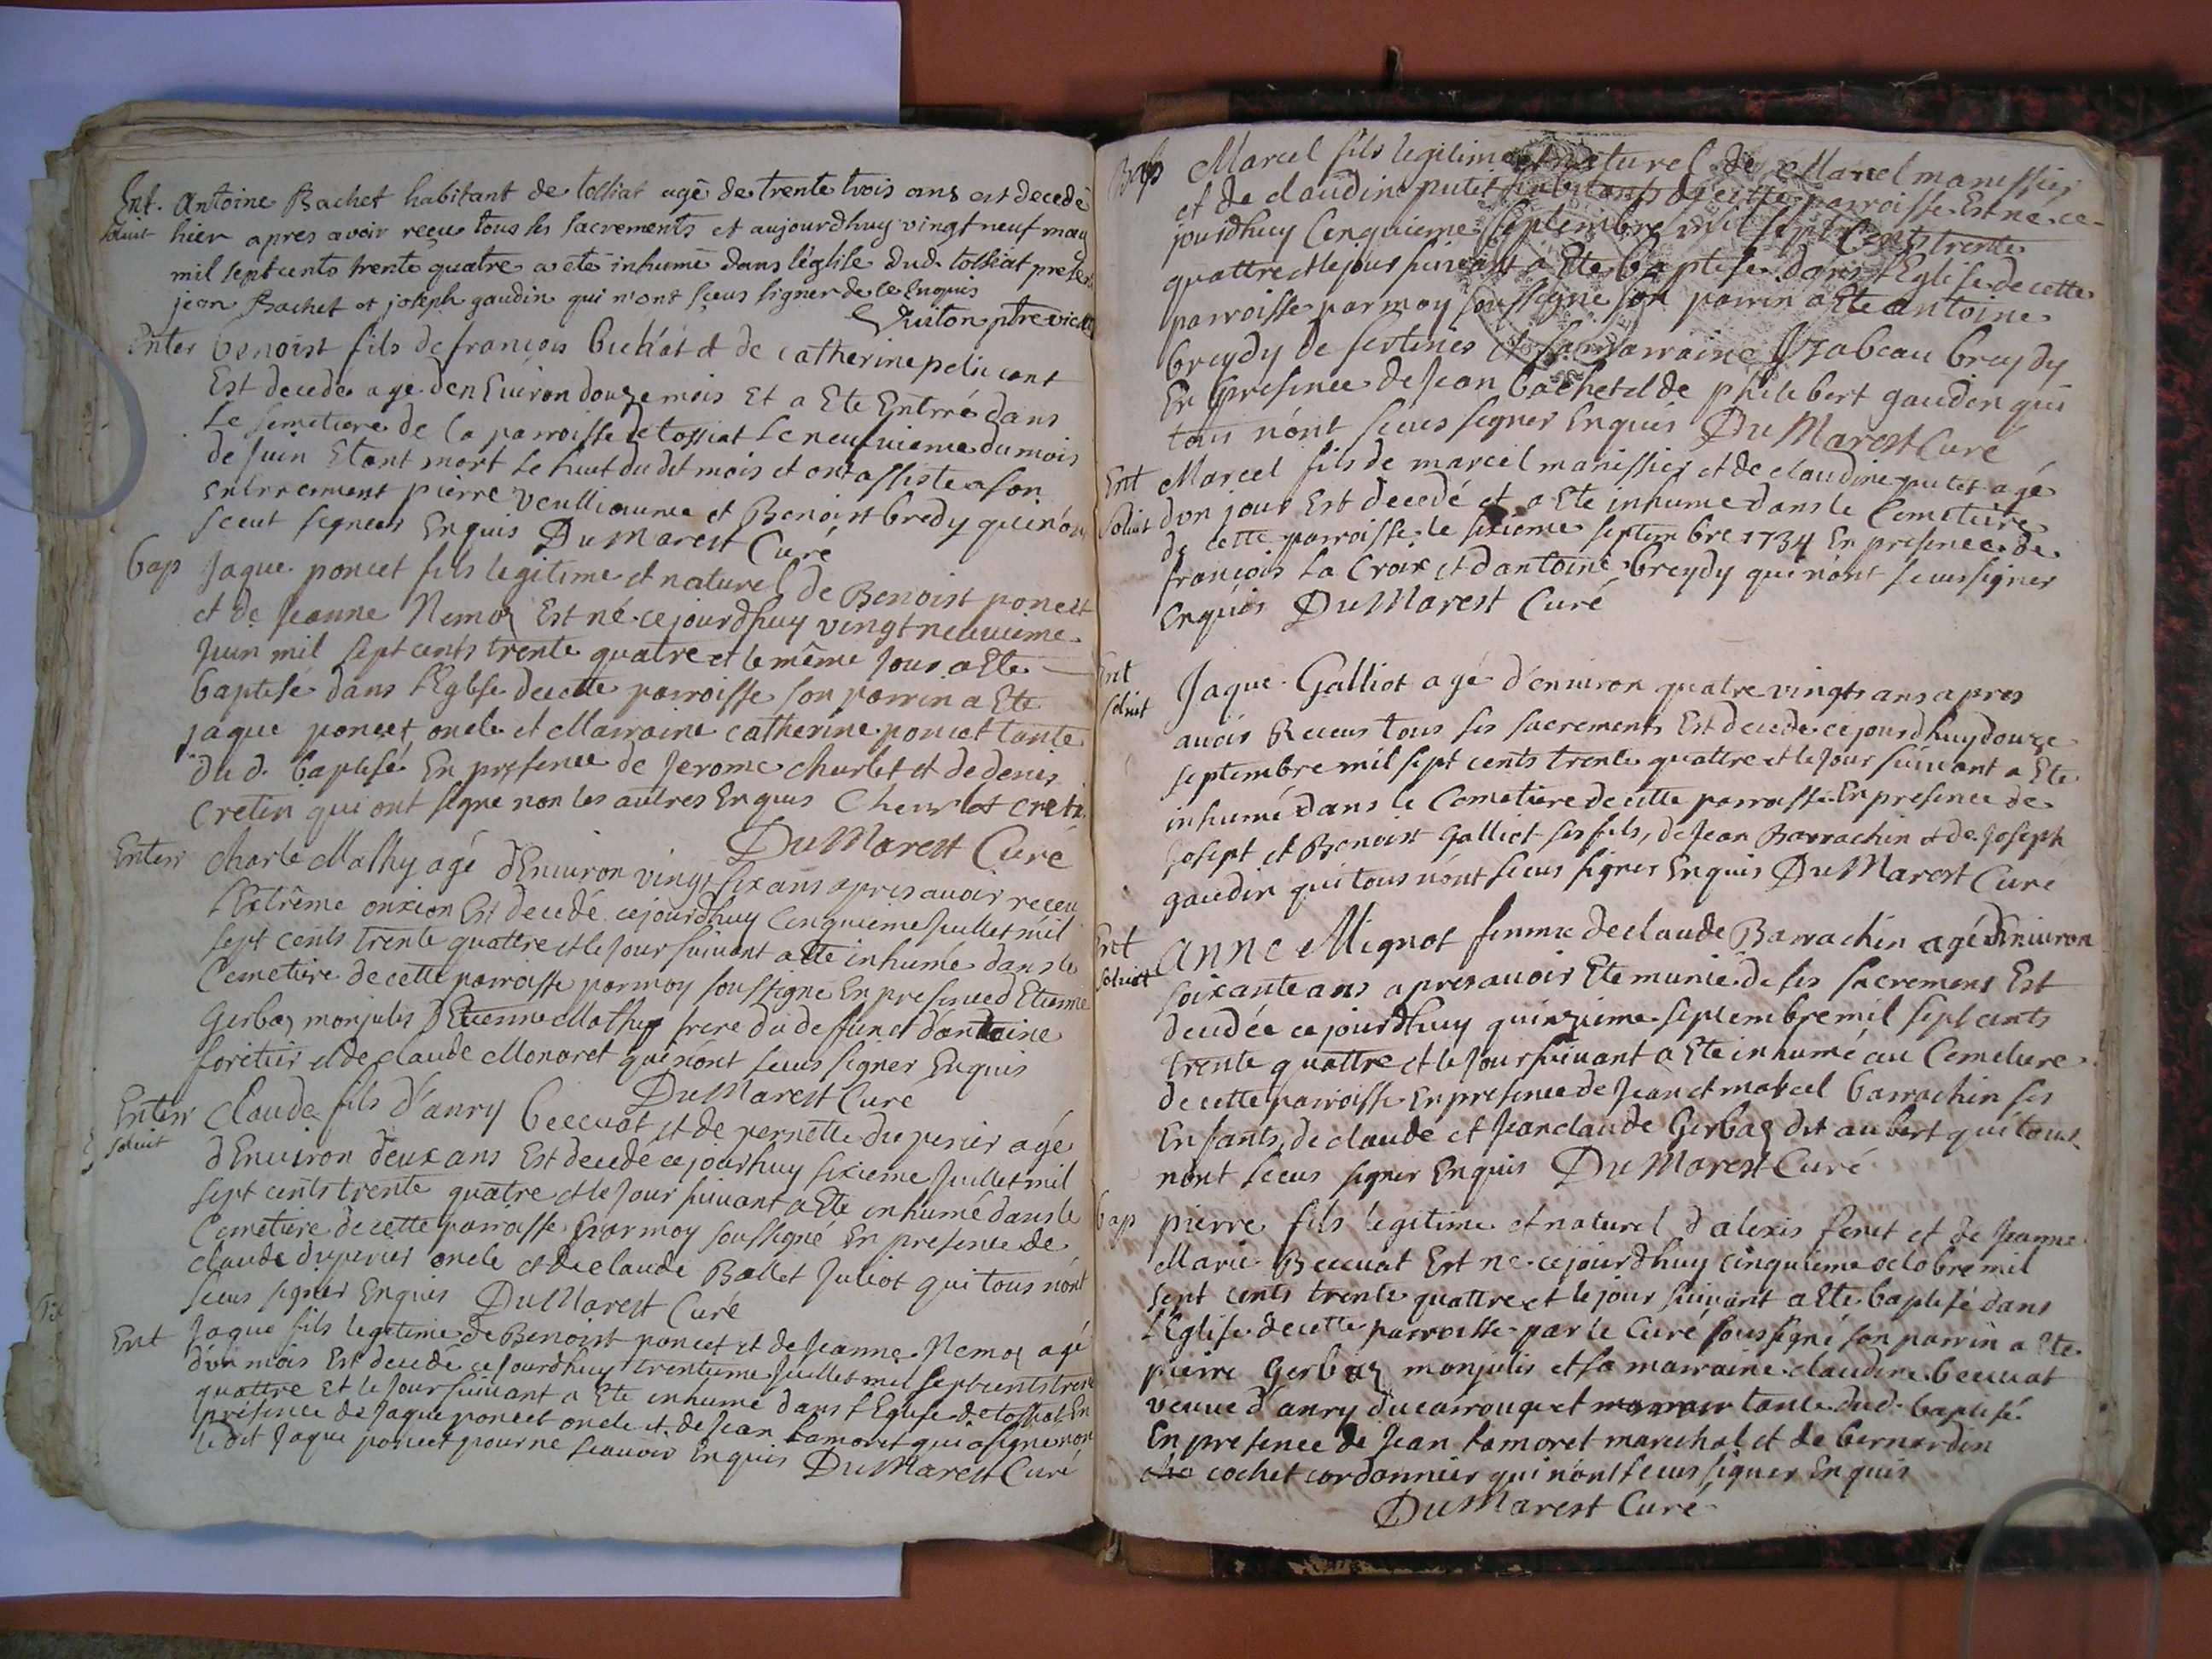 Ent. Antoine Bachet habitant de tossiat agé de trente trois ans est decedé
soluit hier apres avoir reçeu tous les sacrements et aujourdhuy vingt neuf may
mil sept cents trente quatre a eté inhumé dans l'église dud. tossiat presen
jean Bachet et joseph gaudin qui n'ont sceus signer de ce enquis
ptre vic
Enter benoist fils de françois buchat et de catherine pelicant
Est decedé agé denEuiron douze mois Et a Ete Entrré dans
Le semetiere de la parroisse de tossiat Le neufuieme du mois
de juin Etant mort Le huit du dit mois et ont assiste a son
enterrement pierre veullioume et Benoist bredy qui n'on
sceut signeer Enquis DuMarest Curé
bap Jaque poncet fils legitime et naturel de Benoist poncet
et de jeanne Nemoz Est né cejourdhuy vingt neuvieme
juin mil sept cents trente quatre et le même jour a Ete
baptisé dans L'Eglise decette parroisse son parrin a Ete
jaque poncet oncle et Marraine catherine poncet tante
du d. baptisé En presence de jerome churlet et de denis
cretin qui ont signe non les autres Enquis Cheurlot creti
DuMarest Curé
Enterr charle Mathy agé d'Enuiron vingt six ans apres avoir receu
L'Extrême onxion Est decedé cejourdhuy cinquieme juillet mil
sept cents trente quattre et le jour suiuant a Ete inhumé dans le
Cemetiere de cette parroisse par moy soussigné En presence d'Etienne
Gerbaz monjulis d'Etienne Mathy frere du deffunct d'antoine
foretier et de claude Monaret qui n'ont sceus signer Enquis
DuMarest Curé
Enterr claude fils d'anry beccuat et de pernette du perier agé
soluit d'Enuiron deux ans Est decedé ce jourhuy sixieme juillet mil
sept cents trente quatre et le jour suiuant a Ete inhumé dans le
Cemetiere de cette parroisse par moy soussigné En presence de
claude duperier oncle et de claude Ballet juliot qui tous n'ont
sceus signer Enquis DuMarest Curé
Ent Jaque fils legitime de Benoist poncet et de jeanne Nemoz agé
d'un mois Est decedé ce jourdhuy trentieme juillet mil sept cents trente
quattre Et le jour suiuant a Ete inhumé dans l'Eglise de tossiat En
presence de jaque poncet oncle et de jean Lamoret qui a signe non
le dit jaque poncet pour ne sçauoir Enquis DuMarest Curé
Bap Marcel fils legitime et naturel de Marcel manissier
et de claudine putet habitants de cette parroisse Est né ce
jourdhuy Cinquieme septembre mil sept Cents trente
quattre et le jour suiuant a Ete baptisé dans L'Eglise de cette
parroisse par moy soussigne son parrin a Ete antoine
breydy de sertines et sa marraine Yzabeau breydy
En presence de jean bachet et de philebert gaudin qui
tous n'ont sceus signer Enquis DuMarest Curé
Ent Marcel fils de marcel manissier et de claudine putet agé
soluit d'un jour Est decedé et a Ete inhume dans le Cemetiere
de cette parroisse le sixieme septembre 1734 En presence de
françois La Croix et d'antoine breydy qui n'ont sceus signer
Enquis DuMarest Curé
Ent Jaque Galliot agé d'enuiron quatre vingts ans apres
soluit auoir Receus tous ses sacrements Est decedé cejourdhuy douze
septembre mil sept cents trente quattre et le jour suiuant a Ete
inhumé dans le Cemetiere de cette parroisse En presence de
Josept et Benoist Galliot ses fils, de jean Barrachin et de joseph
gaudin qui tous n'ont sceus signer Enquis DuMarest Curé
Ent anne Mignot femme de claude Barrachin agé d'Enuiron
soluit soixante ans apres auoir Ete munie de ses sacremens Est
decedée ce jourdhuy quinzieme septembre mil sept cents
trente quattre et le jour suiuant a Ete inhumé au Cemetiere
de cette parroisse En presence de jean et marcel barrachin ses
Enfants, de claude et jean claude Gerbaz dit aubert qui tous
nont sceus signer Enquis DuMarest Curé
bap pierre fils legitime et naturel d'alexis feret et de jeanne
Marie Beccuat Est né cejourdhuy cinquieme octobre mil
sept cents trente quattre et le jour suiuant a Ete baptisé dans
L'Eglise de cette parroisse par le Curé soussigné son parrin a Ete
pierre Gerbaz monjulis et sa marraine claudine beccuat
veuue d'anry ducarrouge et tante dud. baptisé
En presence de jean Lamoret marechal et de bernardin
cochet cordonnier qui n'ont sceus signer Enquis
DuMarest Curé